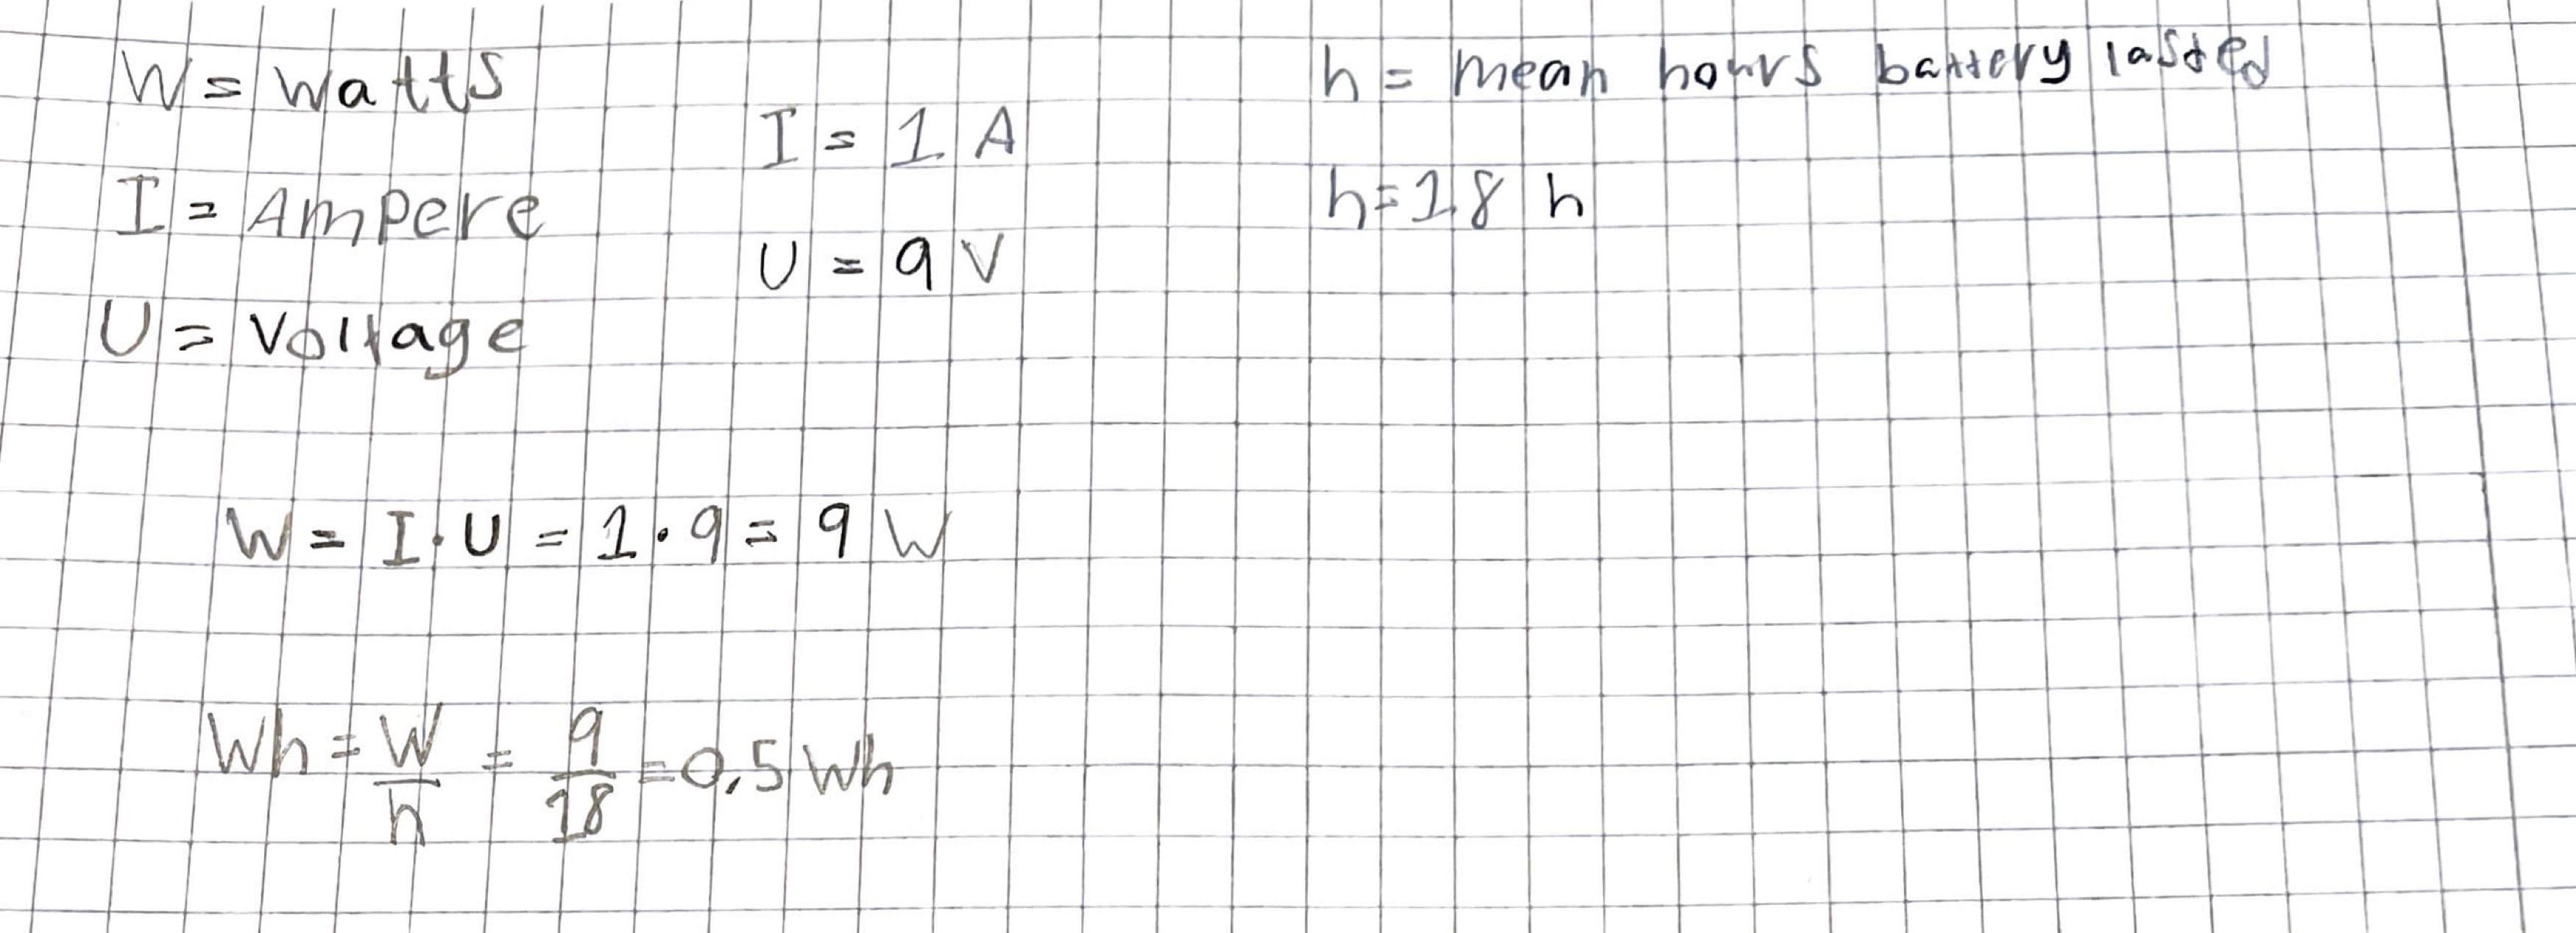 W = Watts
I = Ampere
U = Voltage
I = 1 A
U = 9 V
h = mean hours battery lasted
h = 18 h
W = I · U = 1 · 9 = 9 W
Wh = W/h = 9/18 = 0,5 Wh